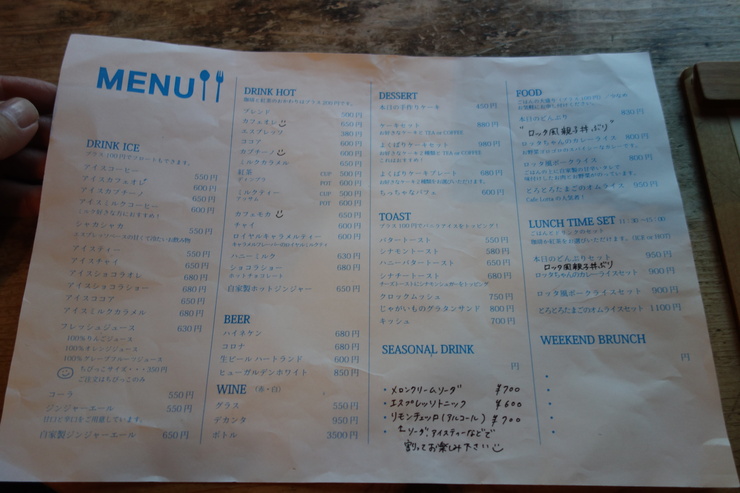 MENU
DRINK ICE
プラス100円でフロートもできます。
アイスコーヒー 550円
アイスカフェオレ 600円
アイスカプチーノ 600円
アイスミルクコーヒー 600円
ミルク好きな方におすすめ！
シャカシャカ 550円
アイスティー 550円
アイスチャイ 650円
アイスショコラオレ 680円
アイスショコラショー 680円
アイスココア 650円
アイスミルクカラメル 680円
フレッシュジュース 630円
100%りんごジュース
100%オレンジジュース
100%グレープフルーツジュース
ちびっこサイズ・・・350円
ご注文はちびっこのみ
コーラ 550円
ジンジャーエール 550円
自家製ジンジャーエール 650円
DRINK HOT
ブレンド 590円
カフェオレ 650円
エスプレッソ 380円
ココア 600円
カプチーノ 600円
ミルクカラメル 650円
紅茶 CUP 500円
POT 600円
ミルクティー CUP 500円
POT 600円
カフェモカ 650円
チャイ 600円
ロイヤルキャラメルティー 600円
ハニーミルク 630円
ショコラショー 680円
ホットチョコレート
自家製ホットジンジャー 650円
BEER
ハイネケン 680円
コロナ 680円
生ビール ハートランド 600円
ヒューガルデンホワイト 850円
WINE (赤・白)
グラス 550円
デカンタ 950円
ボトル 3500円
DESSERT
本日の手作りケーキ 450円
ケーキセット 880円
お好きなケーキと TEA or COFFEE
よくばりケーキセット
これはおすすめ！
よくばりケーキプレート
ちっちゃなパフェ 600円
TOAST
プラス100円でバニラアイスをトッピング！
バタートースト 550円
シナモントースト 580円
ハニーバタートースト 650円
シナナートースト 650円
クロックムッシュ 750円
じゃがいものグラタンサンド 800円
キッシュ 700円
SEASONAL DRINK
円
・メロンクリームソーダ ¥700
・エスプレッソトニック ¥600
・リモンチェッロ(アルコール) ¥700
・ソーダ、アイスティーなどで
割ってお楽しみ下さい
FOOD
本日のどんぶり 830円
"ロッタ風親子丼ぶり"
ロッタちゃんのカレーライス 800円
ロッタ風ポークライス 800円
とろとろたまごのオムライス 950円
Cafe Lottaの人気者！
LUNCH TIME SET 11:30~15:00
ごはんとドリンクのセット
珈琲か紅茶をお選びいただけます。(ICE or HOT)
本日のどんぶりセット 950円
ロッタ風親子丼ぶり
ロッタちゃんのカレーライスセット 900円
ロッタ風ポークライスセット 900円
とろとろたまごのオムライスセット 1100円
WEEKEND BRUNCH
円